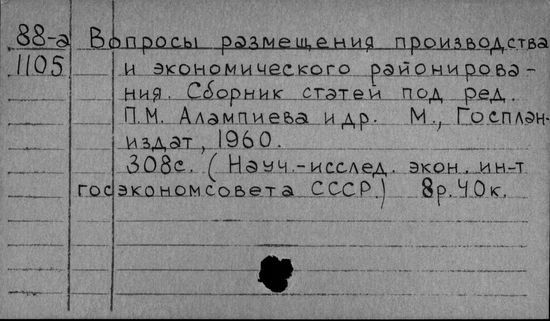 88-а Вопросы размещения производства
1105 и экономического районирова-
ния. Сборник статей под ред.
П.М. Алампиева и др. М., Госплан-
издат, 1960.
308с. (Науч.-исслед. экон. ин-т
госэкономсовета СССР.) 8р.40к.